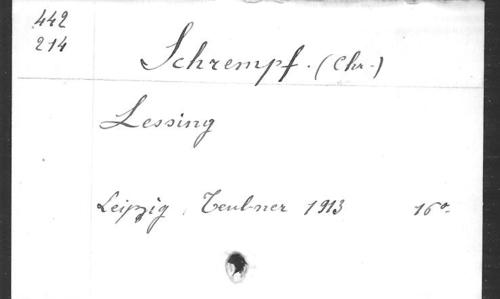 442
214
Schrempf. (Chr.)
Lessing
Leipzig, Teubner 1913 16°.